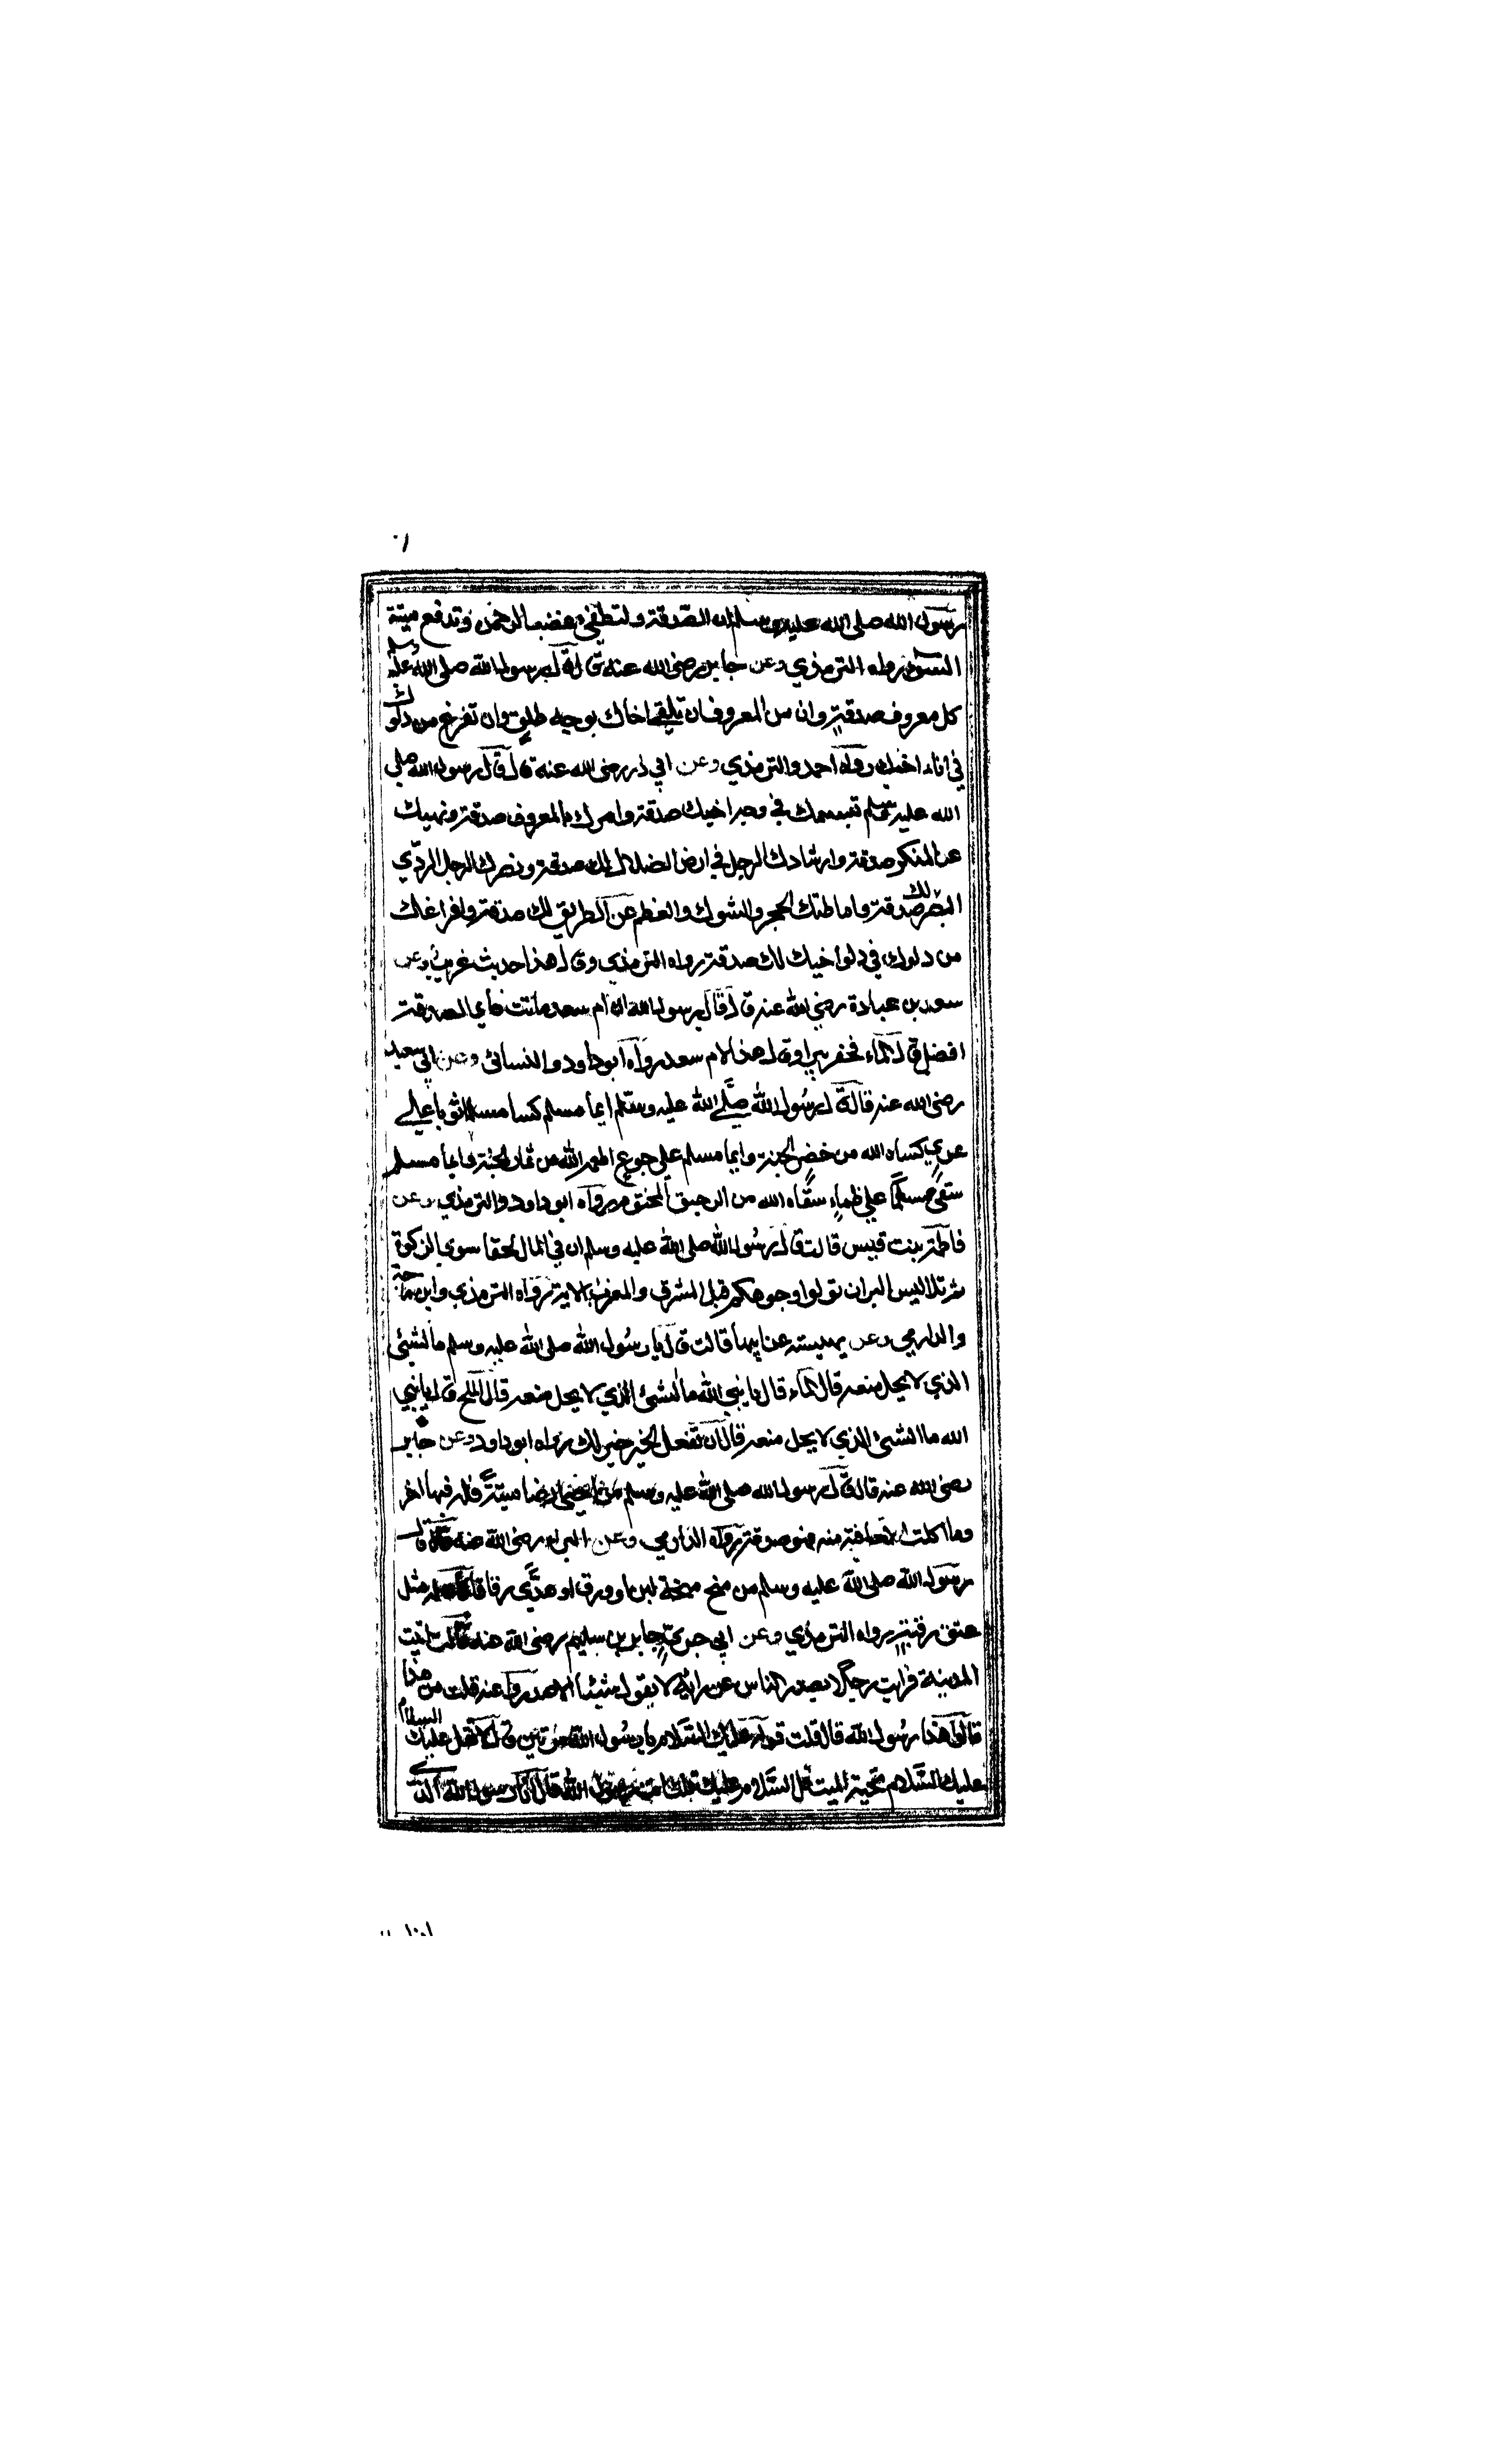 رسول الله صلى الله عليه وسلم ان الصدقة لتطفئ غضب الرحمن وتدفع ميتة
السوء رواه الترمذي وعن جابر رضى الله عنه قال قال رسول الله صلى الله عليه وسلم
كل معروف صدقة وان من المعروف ان تلقى اخاك بوجه طلق وان تفرغ من دلوك
في اناء اخيك رواه احمد والترمذي وعن ابي ذر رضى الله عنه قال قال رسول الله صلى
الله عليه وسلم تبسمك في وجه اخيك صدقة وامرك بالمعروف صدقة ونهيك
عن المنكر صدقة وارشادك الرجل في ارض الضلال لك صدقة ونصرك الرجل الردي
البصر لك صدقة واماطتك الحجر والشوك والعظم عن الطريق لك صدقة وافراغك
من دلوك في دلو اخيك لك صدقة رواه الترمذي وقال هذا حديث غريب وعن
سعد بن عبادة رضي الله عنه قال قال يرسول الله ان ام سعد ماتت فاي الصدقة
افضل قال الماء فحفر بيرا وقال هذا لام سعد رواه ابو داود والنسائى وعن ابي سعيد
رضى الله عنه قال قال رسول الله صلى الله عليه وسلم ايما مسلم كسا مسلما ثوبا على
عري كساه الله من خضر الجنة وايما مسلم على جوع اطعمه الله من ثمار الجنة وايما مسلم
سقى مسلما على ظماء سقاه الله من الرحيق المختوم رواه ابو داود والترمذي وعن
فاطمة بنت قيس قالت قال رسول الله صلى الله عليه وسلم ان في المال لحقا سوي الزكوة
ثم تلا ليس البر ان تولوا وجوهكم قبل المشرق والمغرب الاية رواه الترمذي وابن ماجة
والدارمي وعن بهيسة عن ابيها قالت قال يا رسول الله صلى الله عليه وسلم ما الشئ
الذي لا يحل منعه قال الماء قال يا نبي الله ما الشئ الذي لا يحل منعه قال الملح قال يا نبي
الله ما الشئ الذي لا يحل منعه قال ان تفعل الخير خير لك رواه ابو داود وعن جابر
رضى الله عنه قال قال رسول الله صلى الله عليه وسلم من احيى ارضا ميتة فله فيها اجر
وما اكلت العافية منه فهو صدقة رواه الدارمي وعن البراء رضى الله عنه قال قال
رسول الله صلى الله عليه وسلم من منح منحة لبن او ورق او هدى زقاقا كان له مثل
عتق رقبة رواه الترمذي وعن ابي جري جابر بن سليم رضي الله عنه قال اتيت
المدينة فرايت رجلا يصدر الناس عن رائه لا يقول شيئا الا صدروا عنه قلت من هذا
قالوا هذا رسول الله قال قلت عليك السلام يا رسول الله مرتين قال لا تقل عليك السلام
عليك السلام تحية الميت قل السلام عليك قلت انت رسول الله قال انا رسول الله الذي